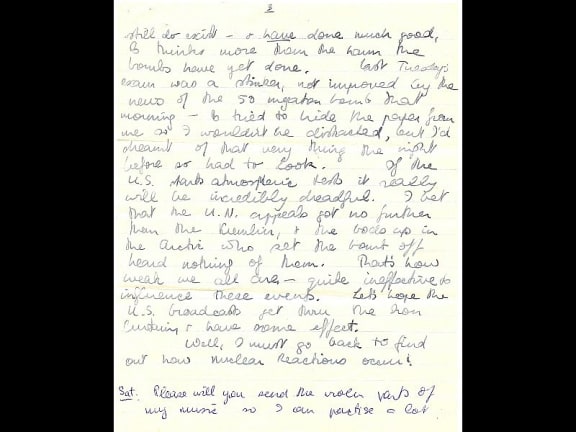 3
still do exist - & have done much good,
B thinks more than the harm the
bombs have yet done. Last Tuesday's
exam was a stinker, not improved by the
news of the 50 megaton bomb that
morning - B tried to hide the paper from
me so I wouldn't be distracted, but I'd
dreamt of that very thing the night
before so had to look. If the
U.S. starts atmospheric tests it really
will be incredibly dreadful. I bet
that the U.N. appeals got no further
than the Kremlin, & the bods up in
the Arctic who set the bomb off
heard nothing of them. That's how
weak we all are - quite ineffective to
influence these events. Let's hope the
U.S. broadcasts get thru the Iron
Curtain & have some effect.
Well, I must go back to find
out how nuclear reactions occur!
Sat: Please will you send the violin parts of
my music so I can practise a lot